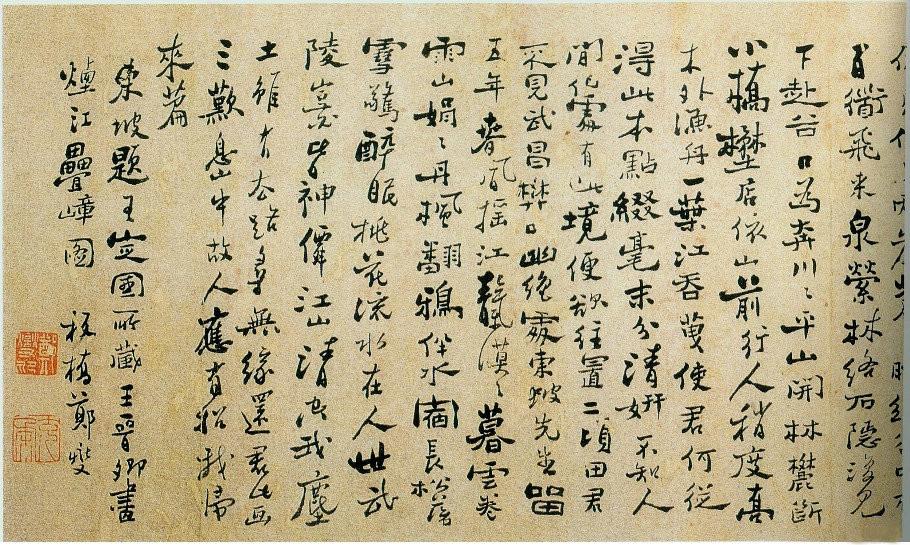 百衜飛来泉縈林絡石隱復見
下赴谷口為奔川〻平山開林麓斷
小橋壄店依山前行人稍度喬
木外漁舟一葉江吞天使君何從
得此本點綴毫末分清妍不知人
間何處有此境便欲往置二頃田君
不見武昌樊口幽絕處東坡先生留
五年春風搖江天漠〻暮雲卷
雨山娟〻丹楓翻鴉伴水宿長松落
雪驚醉眠桃花流水在人世武
陵豈皆神僊江山清空我塵
土雖有去路尋無緣還君此画
三歎息山中故人應有招我歸
來篇
東坡題王定國所藏王晉卿畫
煙江疊嶂圖 板橋鄭燮